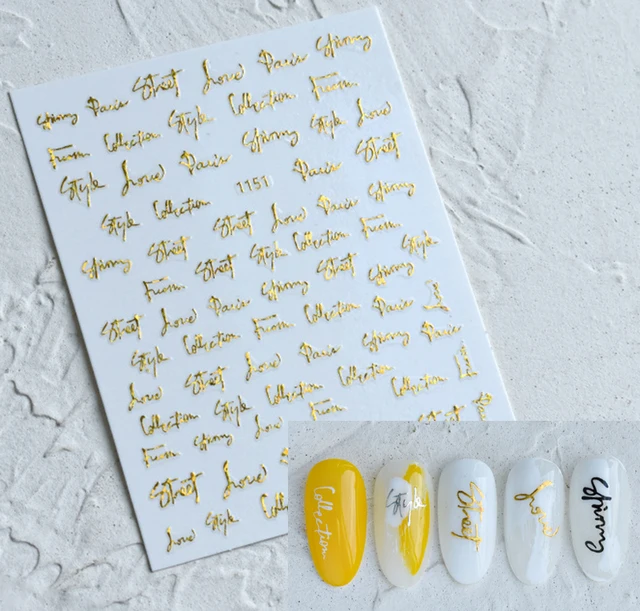 Shinny Paris Street Love Paris Shinny
From Collection Style Collection From
Style Love Paris Shinny Style Love
Style Collection 1151 Paris Street
Shinny Street Street Love Paris Shinny
From Street Style Collection From Style
Street Love Paris Shinny Street Shinny
Style Collection From Collection Paris
Love Street Love Paris Shinny Paris
Collection Style Collection Collection Collection
From Shinny Love From
Street Love
Love Style
Collection
Style
Street
Love
Shinny